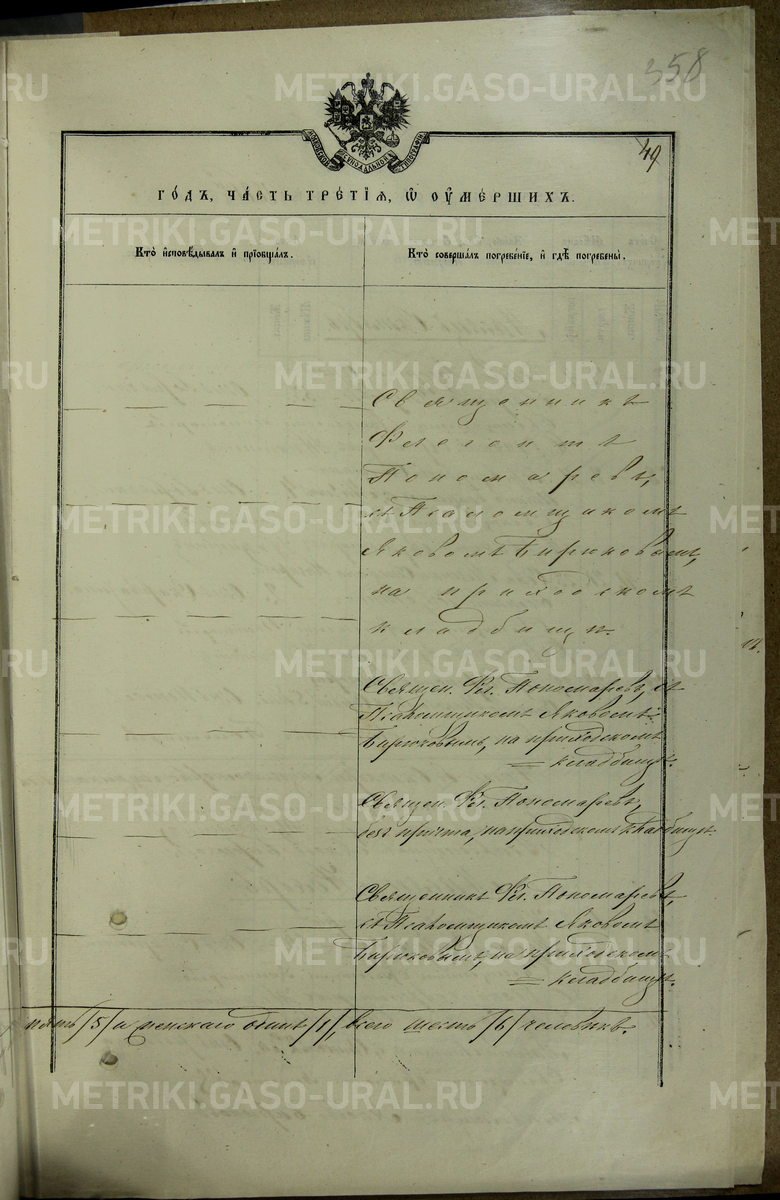 358
49
МОСКОВСКОЙ СУНОДАЛЬНОЙ ТИПОГРАФІИ
ГО́ДЪ, ЧА́СТЬ ТРЕ́ТІѦ, Ѡ҆ ОУ҆МЕ́РШИХЪ.
Кто̀ и҆сповѣ́дывалъ и҆ прїобща́лъ.
Кто̀ соверша́лъ погребе́нїе, и҆ гдѣ̀ погребены̀.
Священникъ
Флегонтъ
Пономаревъ,
съ Псаломщикомъ
Яковомъ Бирюковымъ,
на приходскомъ
кладбищѣ.
Священ. Фл. Пономаревъ, съ
Псаломщикомъ Яковомъ
Бирюковымъ, на приходскомъ
= кладбищѣ.
Священ. Фл. Пономаревъ,
безъ причта, на приходскомъ кладбищѣ.
Священникъ Фл. Пономаревъ,
съ Псаломщикомъ Яковомъ
Бирюковымъ, на приходскомъ
= кладбищѣ.
пять /5/ и женскаго одинъ /1/, всего шесть /6/ человѣкъ.
METRIKI.GASO-URAL.RU